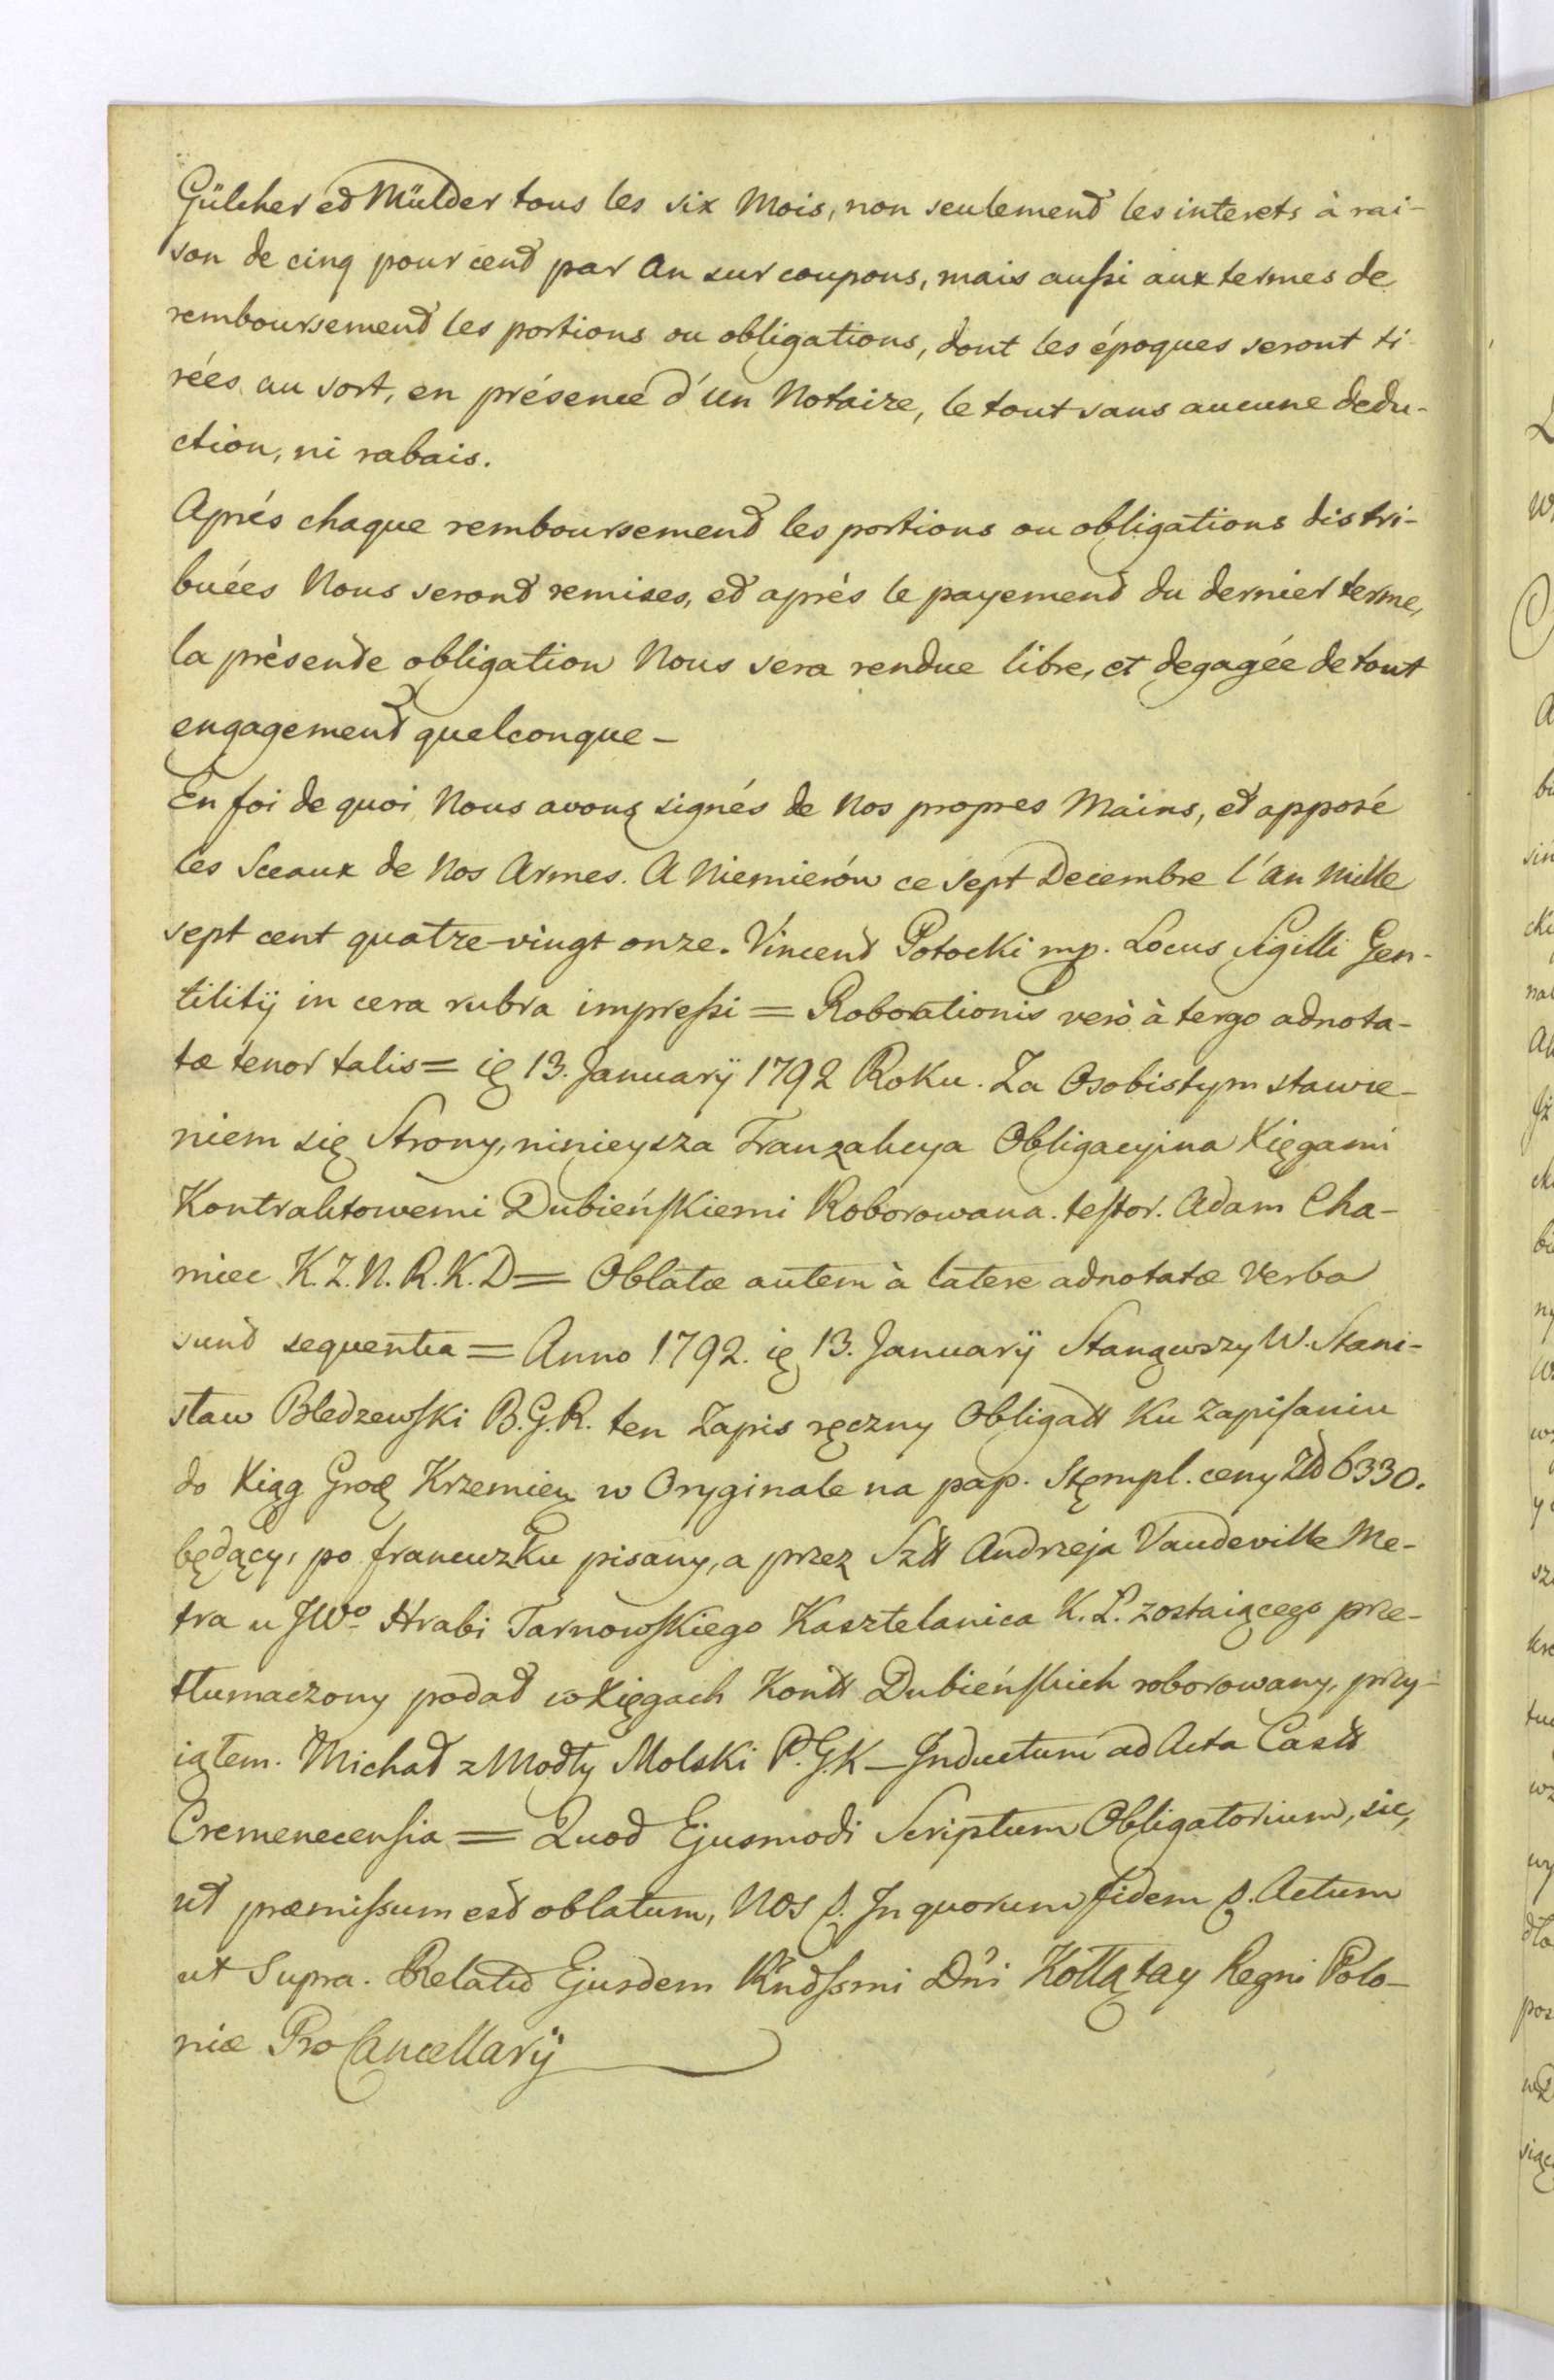 Gülcher et Mülder tous les six Mois, non seulement les interets à rai-
son de cinq pour cent par An sur coupons, mais aussi aux termes de
remboursement les portions ou obligations, dont les époques seront ti
rées au sort, en présence d'un Notaire, le tout sans aucune dedu-
ction, ni rabais.
Aprés chaque remboursement les portions ou obligations distri-
buées Nous seront remises, et aprés le payement du dernier terme,
la présente obligation Nous sera rendue libre, et degagée de tout
engagement quelconque -
En foi de quoi Nous avons signés de Nos propres Mains, et apposé
les Sceaux de Nos Armes. A Niemierów ce sept Decembre l'An Mille
sept cent quatre-vingt onze. Vincent Potocki mp. Locus Sigilli Gen-
tilitij in cera rubra impressi = Roborationis verò à tergo adnota-
tæ tenor talis = ię 13. Januarÿ 1792 Roku. Za Osobistym stawie-
niem się Strony, ninieysza Tranzakcya Obligacyina Xięgami
Kontraktowemi Dubieńskiemi Roborowana. testor. Adam Cha-
miec K. Z. N. R. K. D = Oblatæ autem à latere adnotatæ Verba
sunt sequentia = Anno 1792. ię 13. Januarÿ Stanąwszy W. Stani-
sław Bledzewski B. G. R. ten Zapis ręczny Obligatt Ku Zapisaniu
do Xiąg Grod Krzemien w Oryginale na pap. Stępl. ceny Zł 6330.
będący, po francuzku pisany, a przez Sztt Andrzeja Vaudeville Me-
tra u JWo Hrabi Tarnowskiego Kasztelanica K. L. zostaiącego prze-
tłumaczony podał w Xięgach Kontt Dubieńskich roborowany, przy-
iąłem. Michał z Modły Molski P. G. K - Inductum ad Acta Castt
Cremenecensia = Quod Ejusmodi Scriptum Obligatorium, sic,
ut præmissum est oblatum, Nos p. In quorum fidem p. Actum
ut Supra. Relatio Ejusdem Rndssmi Dni Kołłątay Regni Polo-
niæ Pro Cancellarÿ